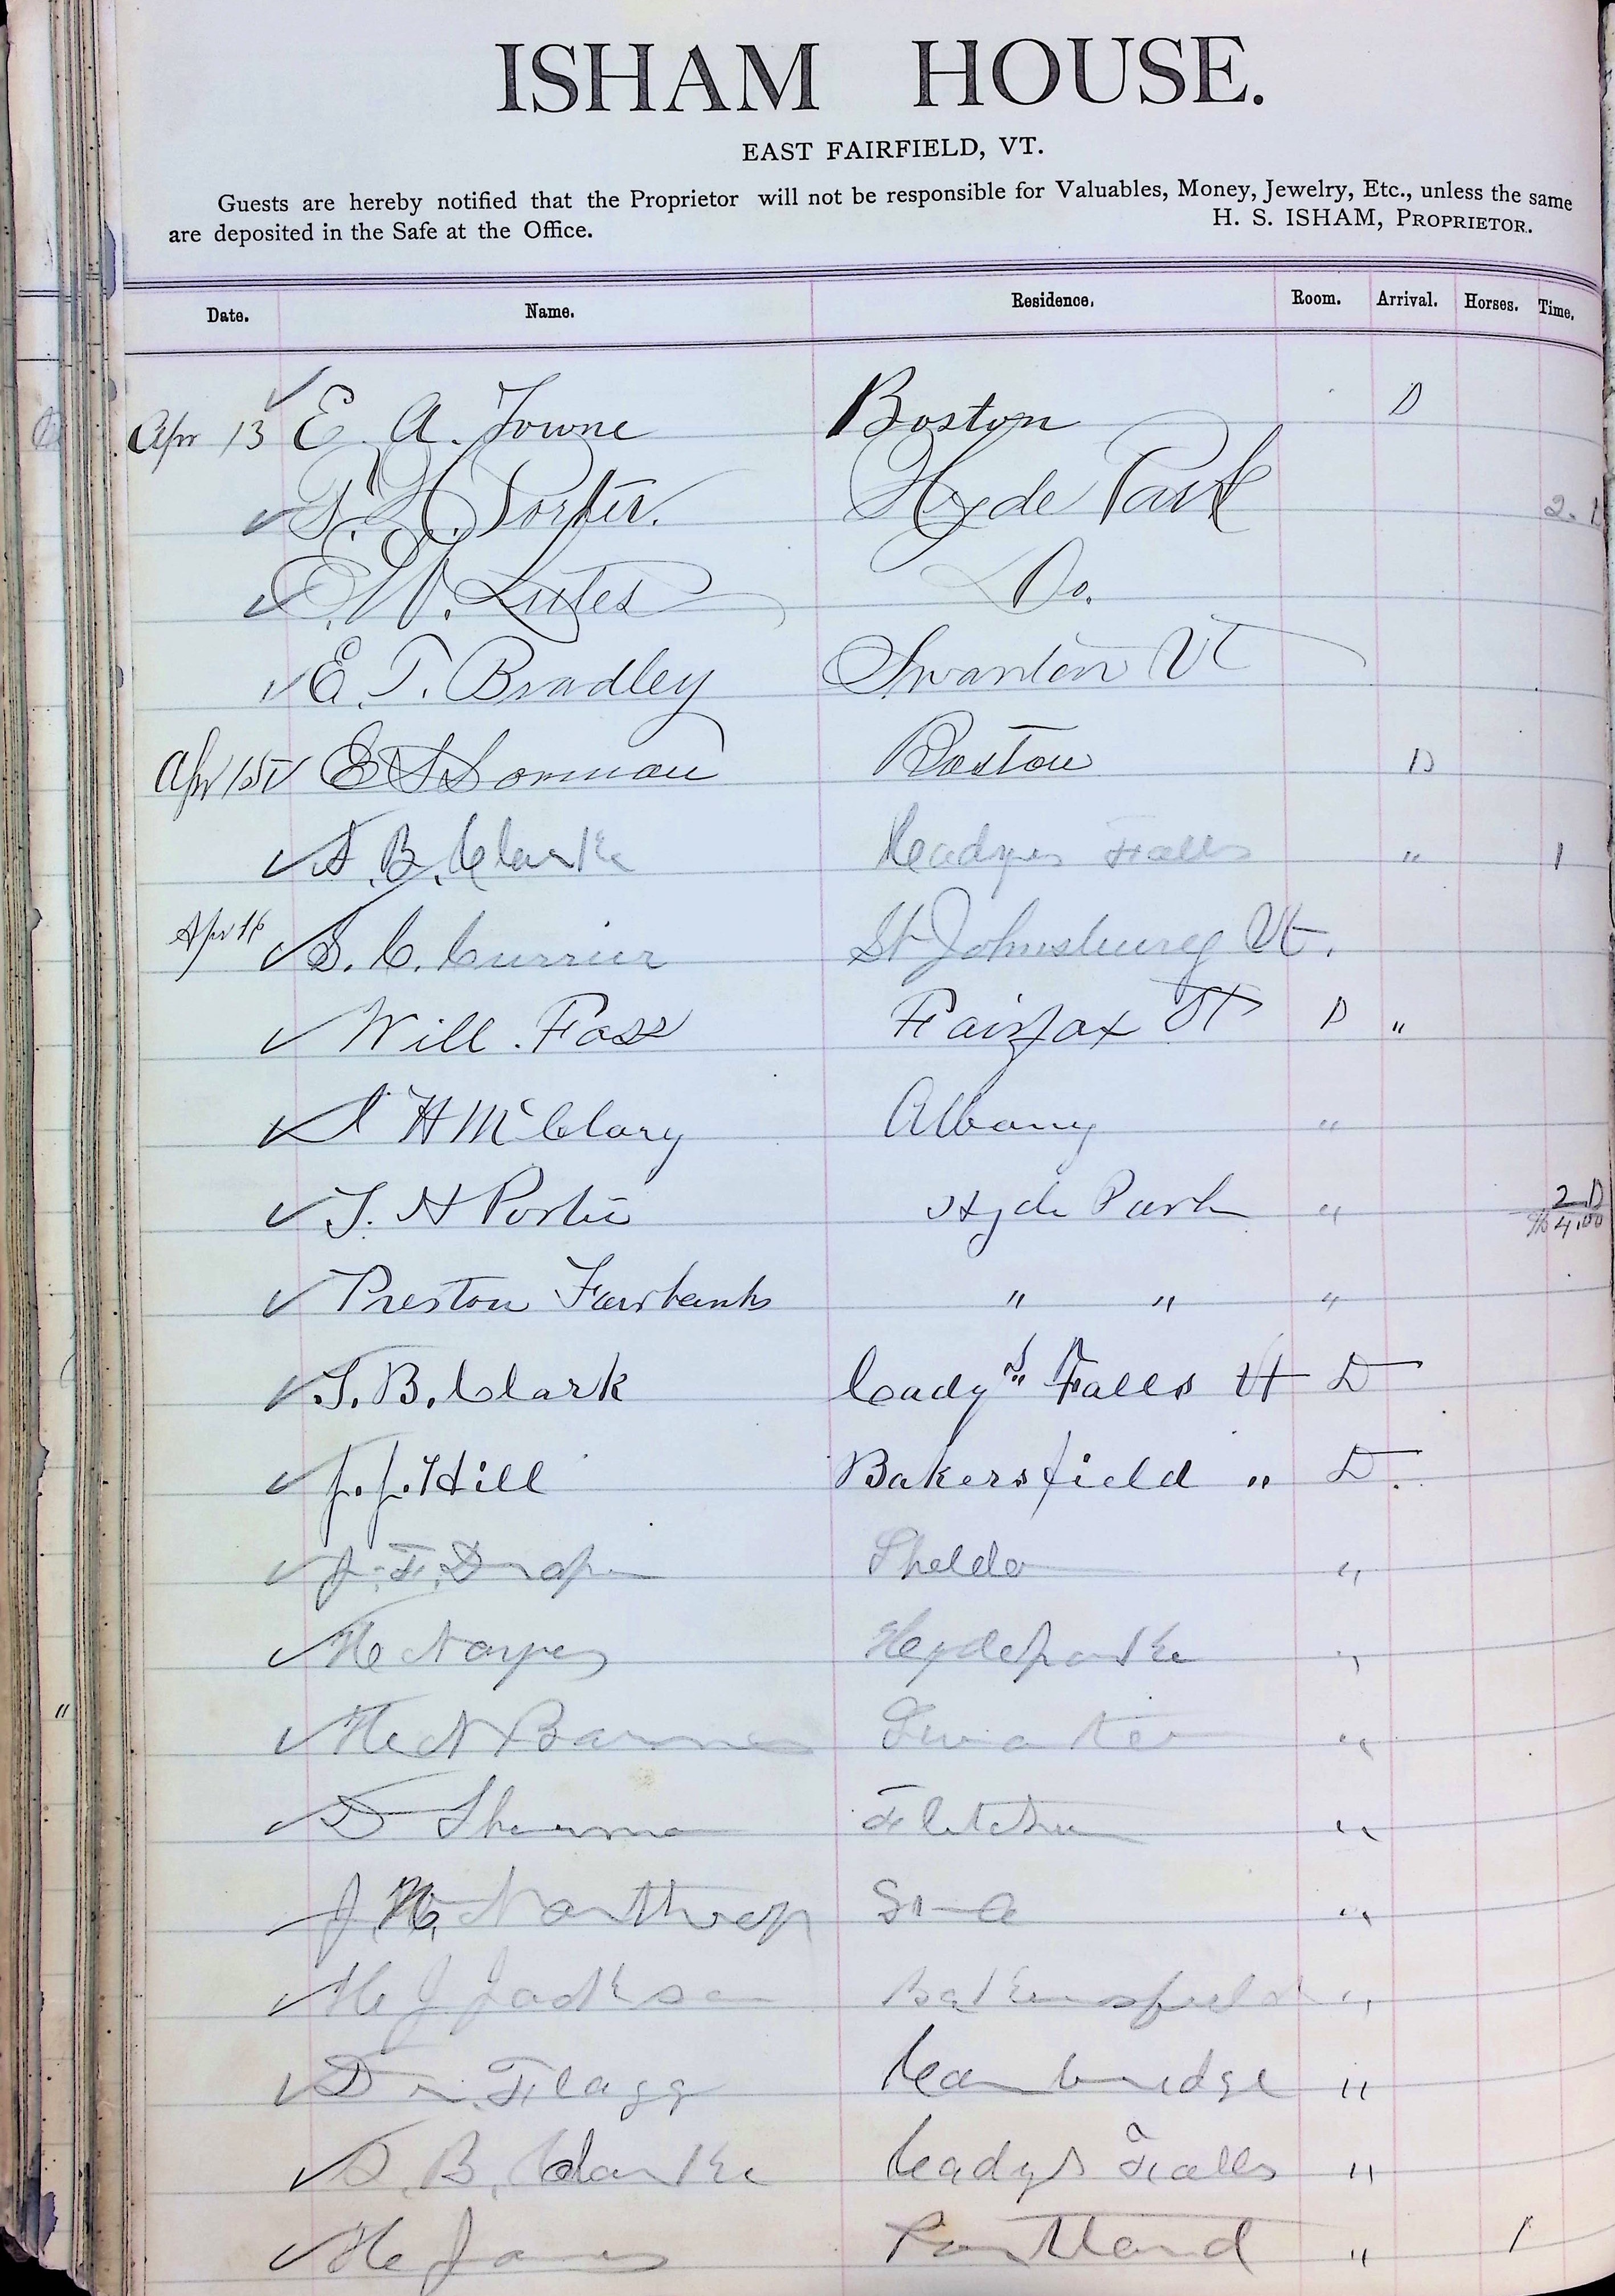 ISHAM HOUSE.
EAST FAIRFIELD, VT.
Guests are hereby notified that the Proprietor will not be responsible for Valuables, Money, Jewelry, Etc., unless the same
are deposited in the Safe at the Office. H. S. ISHAM, PROPRIETOR.
Date. Name. Residence. Room. Arrival. Horses. Time.
Apr 13 E. A. Towne Boston D
Porter. Hyde Park 2.
E. W. Lutes Do.
E. T. Bradley Swanton Vt
Apr 15 Boston D
B. Clark Cadyes Falls " 1
Apr 16 S. C. Currier St Johnsbury Vt.
Will. Foss Fairfax Vt D "
H McClary Albany "
T. H Porter Hyde Park " 2 D
4.00
Preston Fairbanks " " "
T. B. Clark Cady's Falls Vt D
J. J. Hill Bakersfield " D.
J. F. Drap Sheldo "
H Noyes Hydeparke "
H N Barnes Swanton "
D Sherman Fletcher "
J. H. Northrop St A "
H J Jackson Bakersfield "
Dr. Flagg Cambridge "
B. Clarke Cadys Falls "
H James Portland " 1